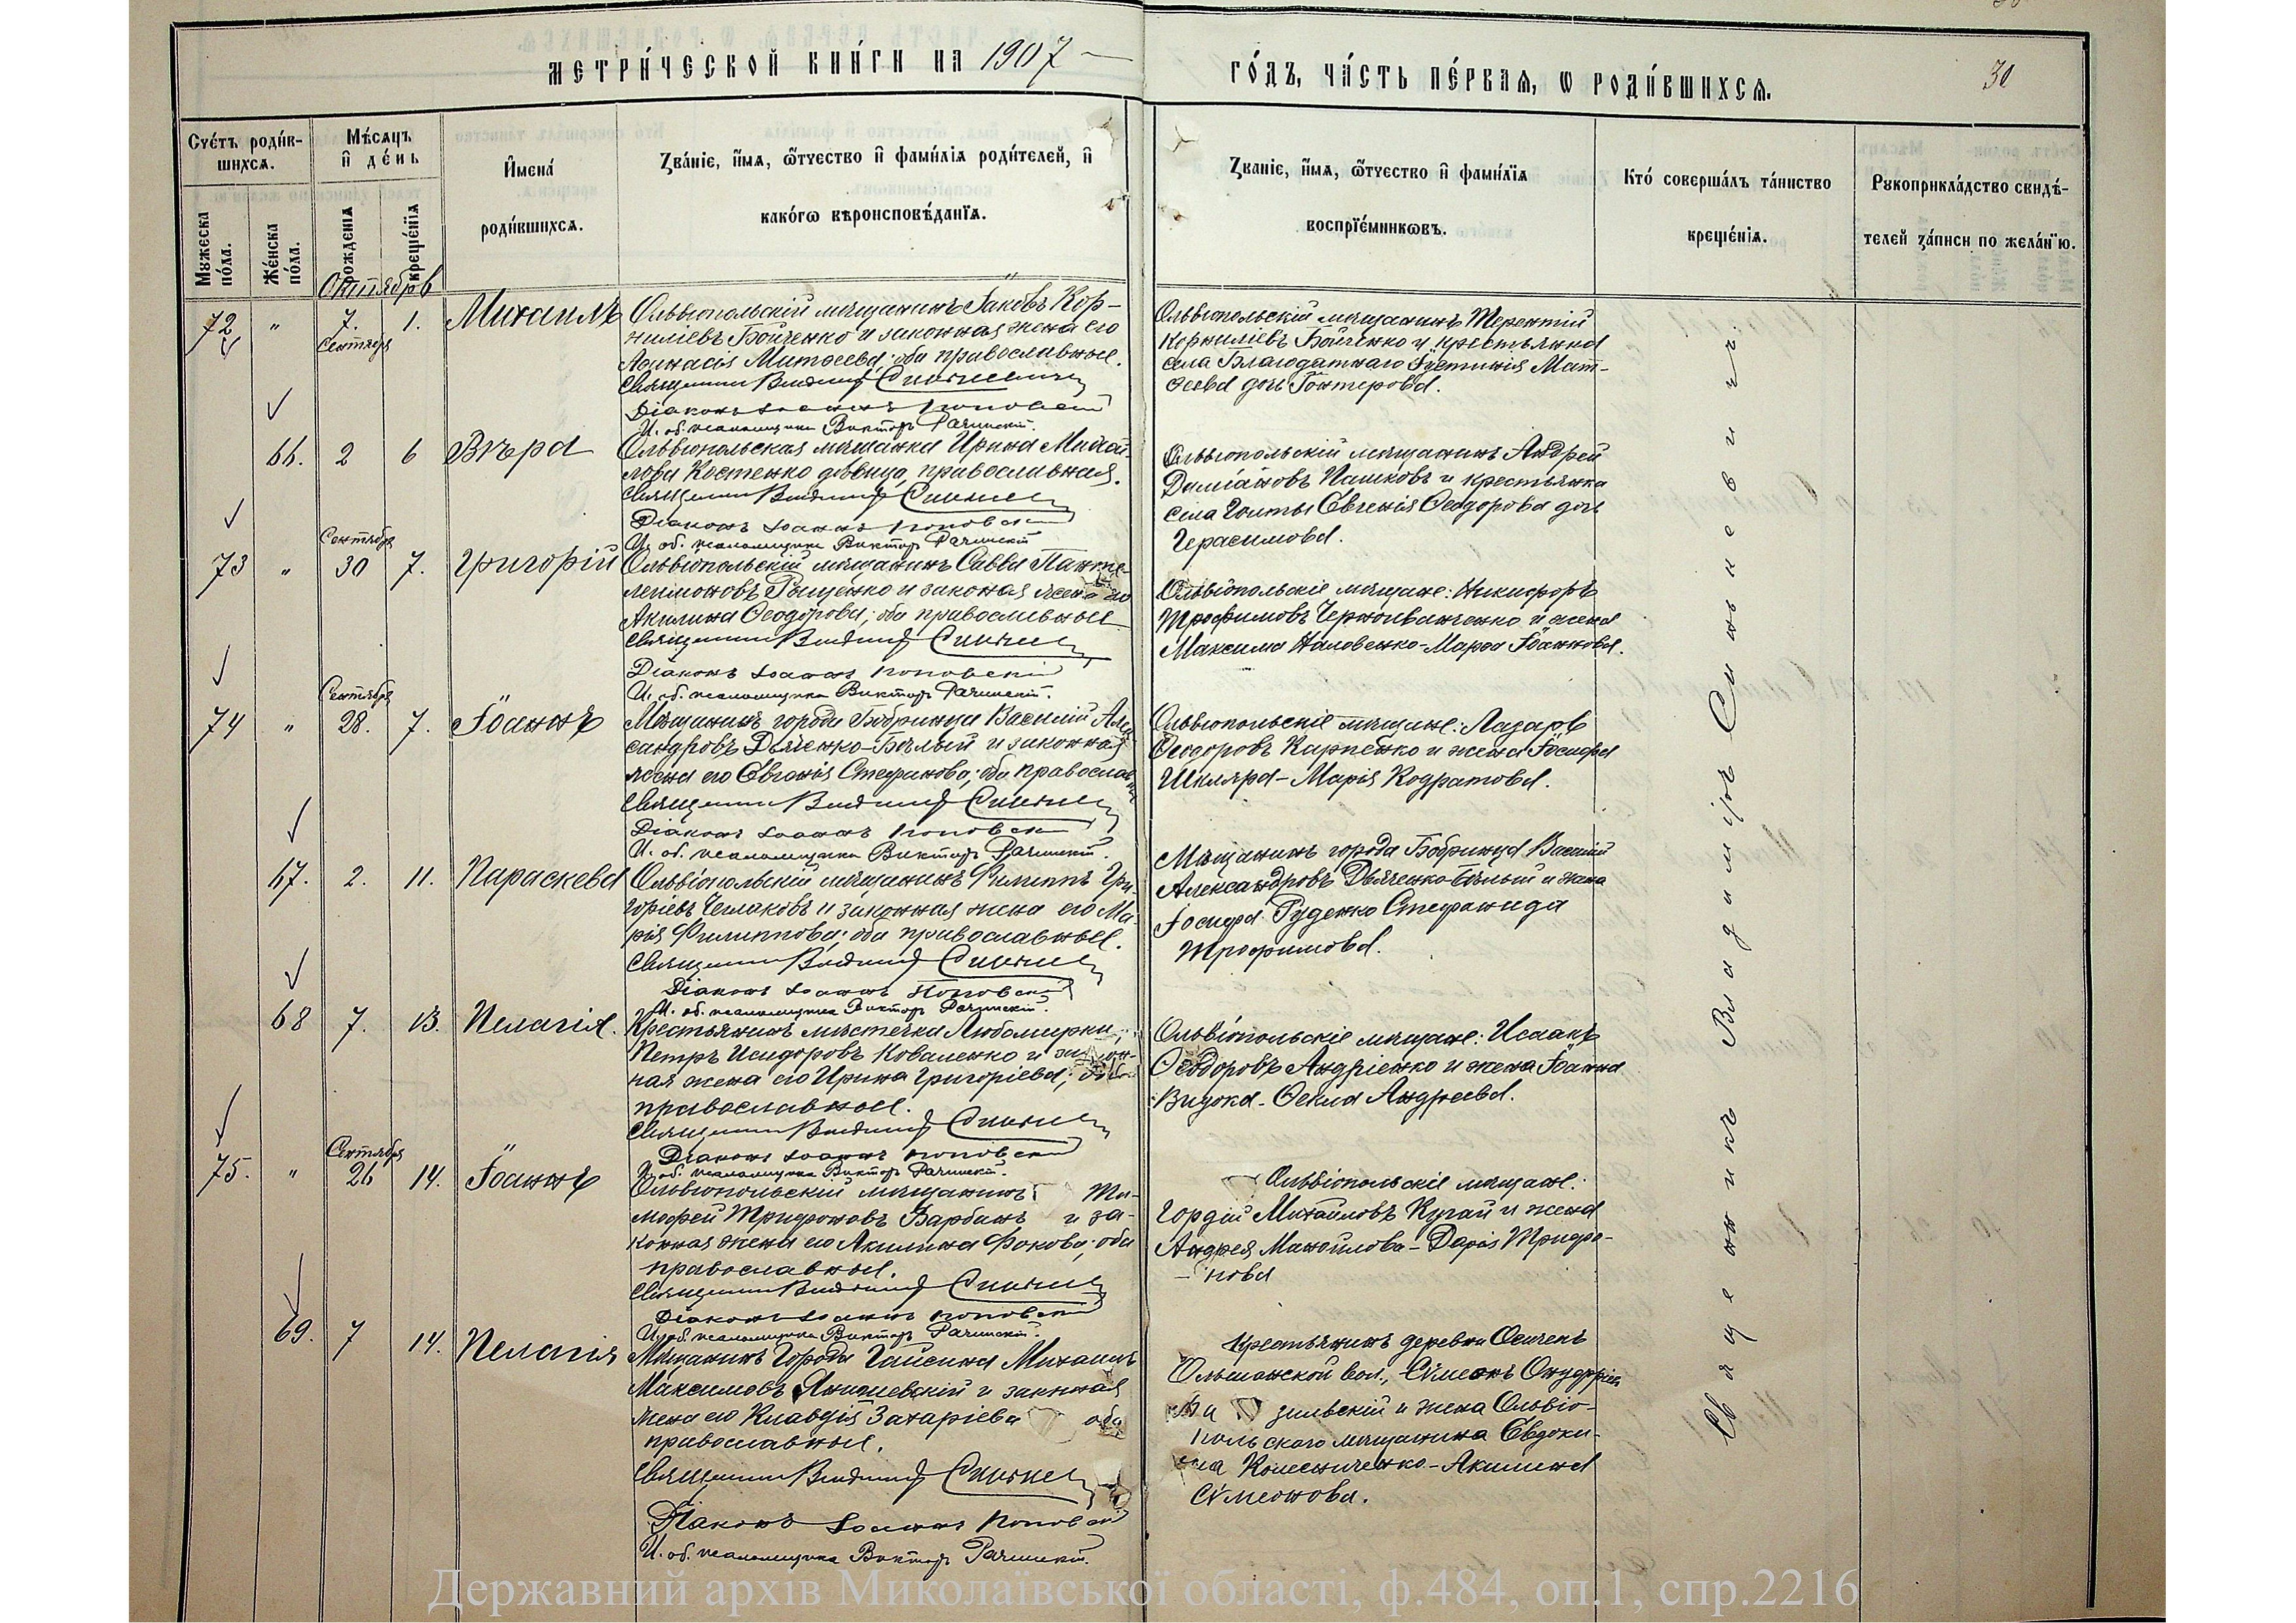 МЕТРИ́ЧЕСКОЙ КНИ́ГИ НА 1907
ГО́ДЪ, ЧА́СТЬ ПЕ́РВАѦ, Ѡ РОДИ́ВШИХСѦ.
30
Счéтъ роди́в-
шихсѧ.
Мужеска
по́ла.
Же́нска
по́ла.
Мѣ́сѧцъ
и҆ де́нь
рожденїѧ
креще́нїѧ
И҆мена́
роди́вшихсѧ.
Зва́нїе, и҆́мѧ, ѻ҆́тчество и҆ фами́лїѧ роди́телей, и҆
како́гѡ вѣроисповѣ́данїѧ.
Зва́нїе, и҆́мѧ, ѻ҆́тчество и҆ фами́лїѧ
воспрїе́мникѡвъ.
Кто̀ соверша́лъ та́инство
креще́нїѧ.
Рукоприкла́дство свидѣ́-
телей за́писи по жела́нїю.
Октябрь
72 " 7. 1. Михаилъ
Сентябрь
Ольвіопольскій мѣщанинъ Іаковъ Кор-
ниліевъ Бойченко и законная жена его
Аѳанасія Матѳеева; оба православные.
Священникъ Владимiръ Синькевичъ
Діаконъ Іоаннъ Поповскій
И. об. псаломщика Викторъ Рачинскій.
Ольвіопольскій мѣщанинъ Терентій
Корниліевъ Бойченко и крестьянка
села Благодатнаго Іустинія Мат-
ѳеева дочь Гонтерова.
66. 2 6 Вѣра
Ольвіопольская мѣщанка Ирина Михай-
лова Костенко дѣвица, православная.
Священникъ Владимiръ Синькевичъ
Діаконъ Іоаннъ Поповскій
И. об. псаломщика Викторъ Рачинскій
Ольвіопольскій мѣщанинъ Андрей
Даміановъ Пашковъ и крестьянка
села Голты Євгенія Ѳеодорова дочь
Герасимова.
Сентября
73 " 30 7. Григорій
Ольвіопольскій мѣщанинъ Савва Панте-
леимоновъ Рыщенко и законая жена его
Акилина Ѳеодорова; оба православные
Священникъ Владимiръ Синькевичъ
Діаконъ Іоаннъ Поповскій
И. об. псаломщика Викторъ Рачинскій.
Ольвіопольскіе мѣщане: Никифоръ
Трофимовъ Черноиваненко и жена
Максима Наловенко-Марѳа Іоаннова.
Сентября
74 " 28. 7. Іоаннъ
Мѣщанинъ города Бобринца Василій Алек-
сандровъ Дьяченко-Бѣлый и законная
жена его Євгенія Стефанова; оба православные
Священникъ Владимiръ Синькевичъ
Діаконъ Іоаннъ Поповскій
И. об. псаломщика Викторъ Рачинскій.
Ольвіопольскіе мѣщане: Лазарь
Ѳеодоровъ Карпенко и жена Іосифа
Шкляра-Марія Кодратова.
67. 2. 11. Параскева
Ольвіопольскій мѣщанинъ Филиппъ Гри-
горіевъ Чеглаковъ и законная жена его Ма-
рія Филиппова; оба православные.
Священникъ Владимiръ Синькевичъ
Діаконъ Іоаннъ Поповскій
И. об. псаломщика Викторъ Рачинскій.
Мѣщанинъ города Бобринца Василій
Александровъ Дьяченко-Бѣлый и жена
Іосифа Руденко Стефанида
Трофимова.
68 7. 13. Пелагія.
Крестьянинъ мѣстечка Любомирки,
Петръ Исидоровъ Коваленко и закон-
ная жена его Ирина Григоріева; оба
православные.
Священникъ Владимiръ Синькевичъ
Діаконъ Іоаннъ Поповскій
И. об. псаломщика Викторъ Рачинскій.
Ольвіопольскіе мѣщане: Исаакъ
Ѳеодоровъ Андріенко и жена Іоанна
Видока-Ѳекла Андреева.
Сентября
75. " 26 14. Іоаннъ
Ольвіопольскій мѣщанинъ Ти-
моѳей Трифоновъ Барбанъ и за-
конная жена его Акилина Фокова; оба
православные.
Священникъ Владимiръ Синькевичъ
Діаконъ Іоаннъ Поповскій
И. об. псаломщика Викторъ Рачинскій.
Ольвіопольскіе мѣщане:
Гордій Михайловъ Кугай и жена
Андрея Манойлова-Дарія Трифо-
нова
69. 7 14. Пелагія
Мѣщанинъ города Гайсина Михаилъ
Максимовъ Янишевскій и законная
жена его Клавдія Захаріева оба
православные.
Священникъ Владимiръ Синькевичъ
Діаконъ Іоаннъ Поповскій
И. об. псаломщика Викторъ Рачинскій.
Крестьянинъ деревни Осичекъ
Ольшанской вол., Сѵмеонъ Онуфріев
зилевскій и жена Ольвіо-
польскаго мѣщанина Євдоки-
ма Колесниченко-Акилина
Сѵмеонова.
Священникъ Владиміръ Синькевичъ.
Державний архів Миколаївської області, ф.484, оп.1, спр.2216